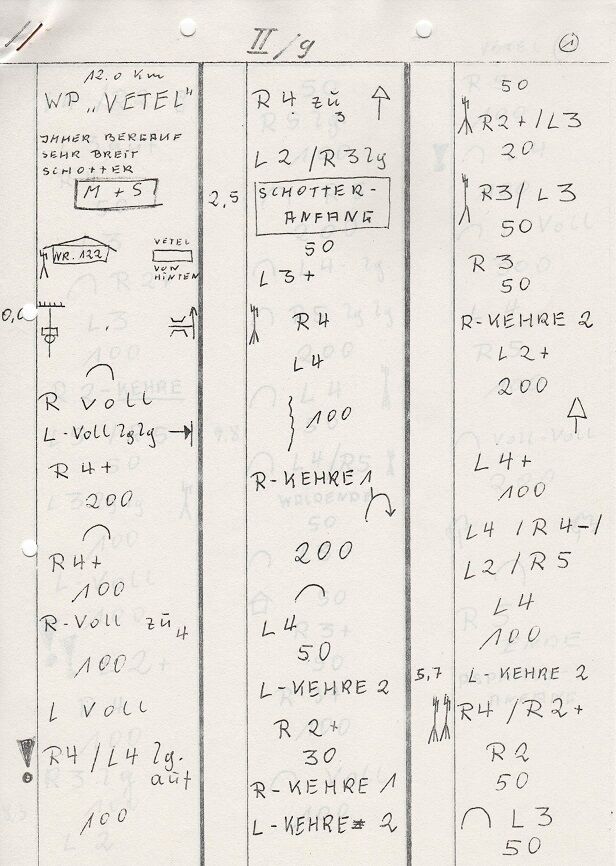 II/9
1
12.0 Km
WP „VETEL"
IMMER BERGAUF
SEHR BREIT
SCHOTTER
M + S
WR. 122
VETEL
VON
HINTEN
L 3
100
R VOLL
L-VOLL lglg
R 4+
200
R4+
100
R-VOLL zü 4
100
L VOLL
R4/L4 lg.
auf
100
R 4 zü 3
L 2 /R3lg
2,5
SCHOTTER-
ANFANG
50
L 3+
R4
L4
100
R-KEHRE 1
200
L4
50
L-KEHRE 2
R 2+
30
R-KEHRE 1
L-KEHRE 2
50
R2+/L3
20
R3/L3
50
R 3
50
R-KEHRE 2
L2+
200
L4+
100
L4 /R4-/
L2/R5
L4
100
5,7
L-KEHRE 2
R4/R2+
R2
50
L3
50